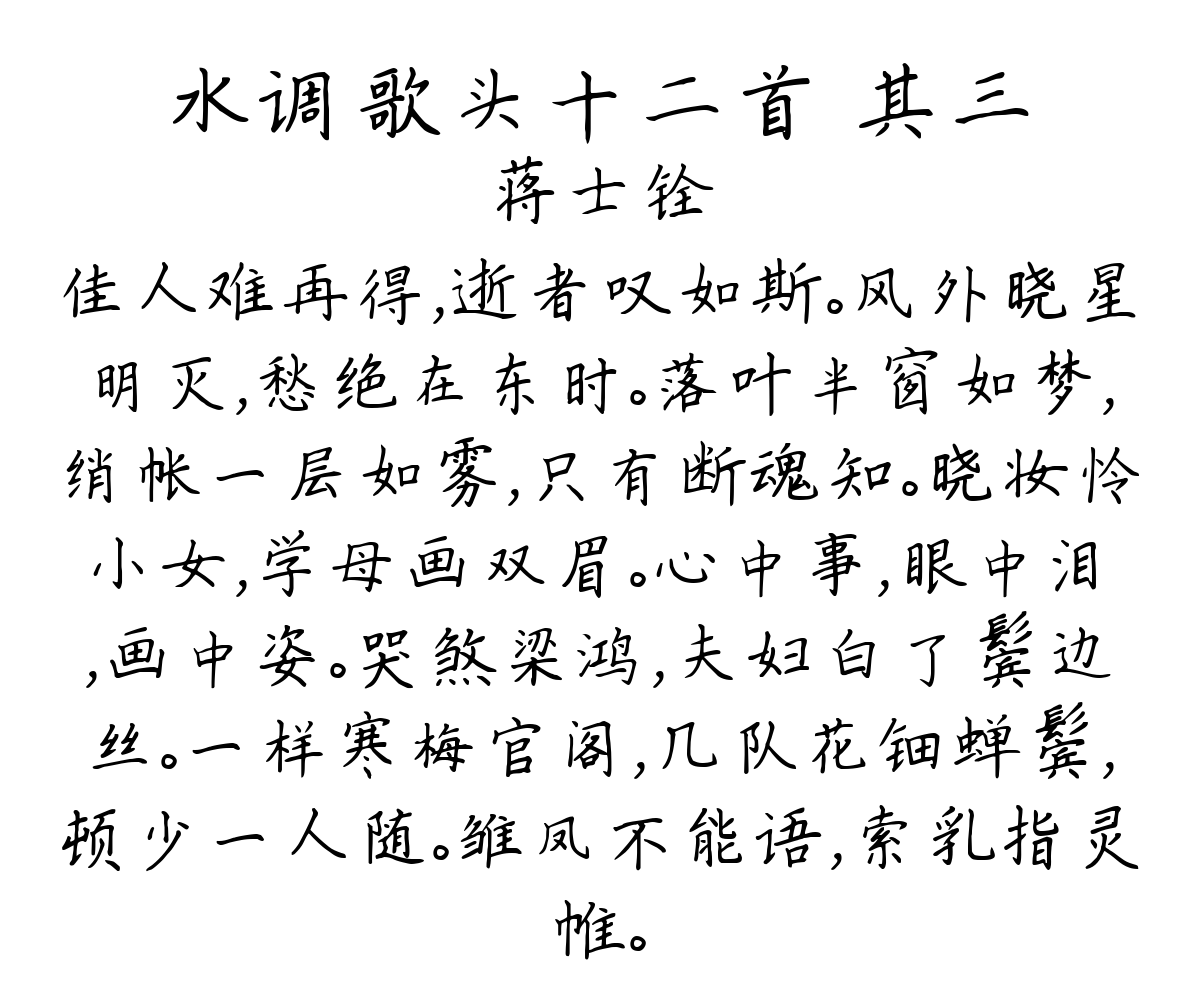 水调歌头十二首 其三
蒋士铨
佳人难再得,逝者叹如斯。风外晓星
明灭,愁绝在东时。落叶半窗如梦,
绡帐一层如雾,只有断魂知。晓妆怜
小女,学母画双眉。心中事,眼中泪
,画中姿。哭煞梁鸿,夫妇白了鬓边
丝。一样寒梅官阁,几队花钿蝉鬓,
顿少一人随。雏凤不能语,索乳指灵
帷。